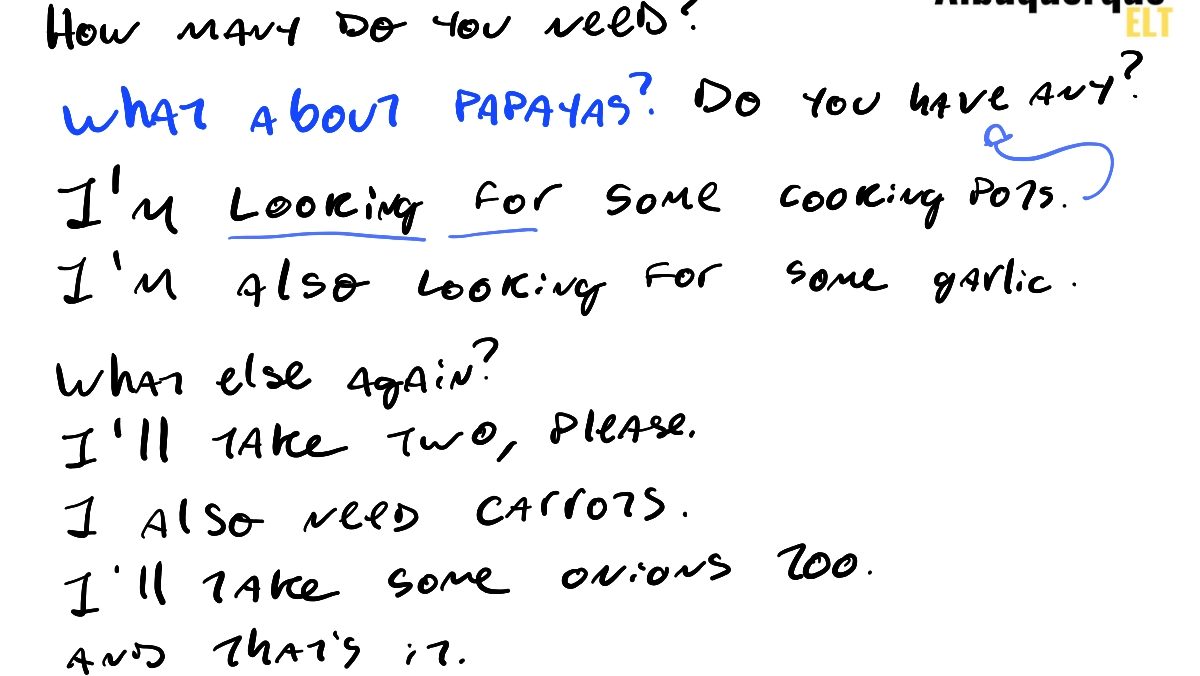 Albuquerque
ELT
How many do you need?
What about papayas? Do you have any?
I'm looking for some cooking pots.
I'm also looking for some garlic.
What else again?
I'll take two, please.
I also need carrots.
I'll take some onions too.
And that's it.